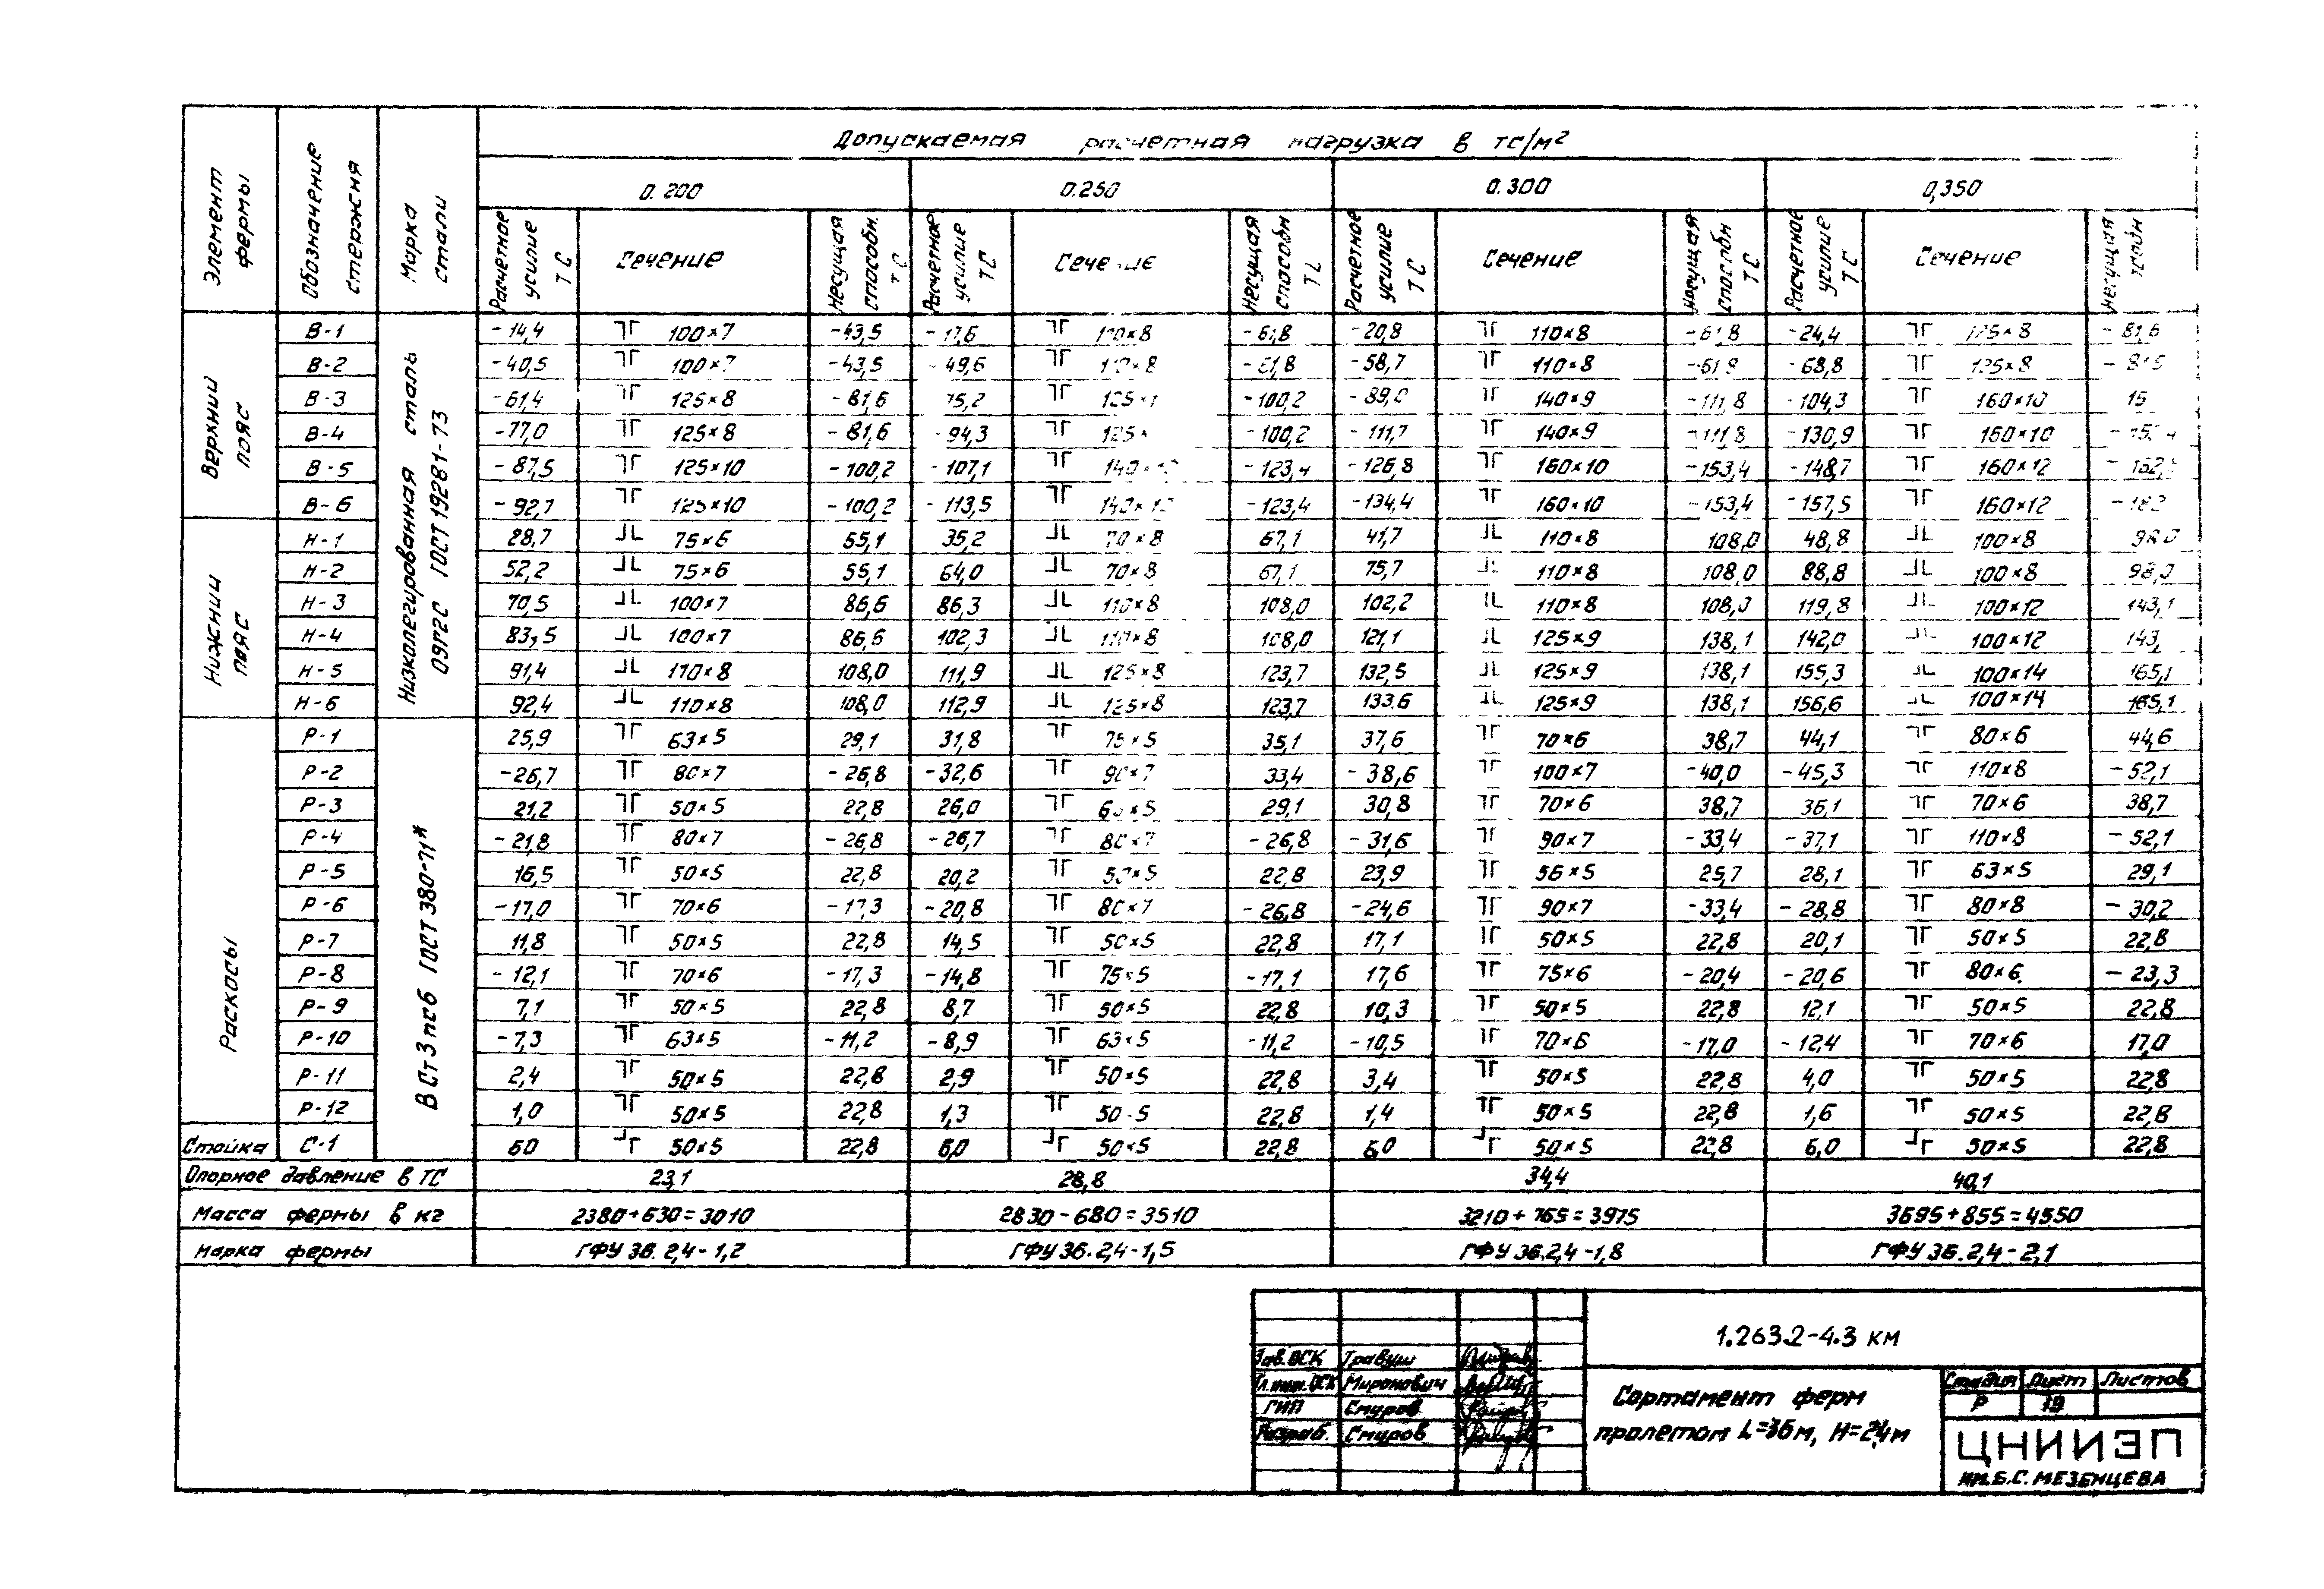 Допускаемая расчетная нагрузка в тс/м²
Элемент фермы
Обозначение стержня
Марка стали
0.200 0.250 0.300 0,350
Расчетное усилие ТС Сечение Несущая способн. ТС Расчетное усилие ТС Сечение Несущая способн ТС Расчетное усилие ТС Сечение Несущая способн ТС Расчетное усилие ТС Сечение Несущая
Верхний пояс
Нижний пояс
Раскосы
Низколегированная сталь 09Г2С ГОСТ 19281-73
В Ст3 пс6 ГОСТ 380-71*
В-1 -14,4 100×7 -43,5 -17,6 -61,8 -20,8 110×8 -61,8 -24,4 125×8 -81,6
В-2 -40,5 -43,5 -49,6 -61,8 -58,7 110×8 -61,8 -68,8 125×8
В-3 -61,4 125×8 -81,6 75,2 -100,2 140×9 -111,8 -104,3 160×10
В-4 -77,0 125×8 -81,6 -94,3 -100,2 -111,7 140×9 -111,8 -130,9 160×10
В-5 -87,5 125×10 -100,2 -107,1 -123,4 -126,8 160×10 -153,4 -148,7 160×12
В-6 -92,7 125×10 -100,2 -113,5 -123,4 -134,4 160×10 -153,4 -157,5 160×12
Н-1 28,7 75×6 55,1 35,2 70×8 67,1 41,7 110×8 108,0 48,8 100×8 98,0
Н-2 52,2 75×6 55,1 64,0 70×8 67,1 75,7 110×8 108,0 88,8 100×8 98,0
Н-3 70,5 100×7 86,6 86,3 110×8 108,0 102,2 110×8 108,0 119,8 100×12 143,1
Н-4 83,5 100×7 86,6 102,3 110×8 108,0 121,1 125×9 138,1 142,0 100×12
Н-5 91,4 110×8 108,0 111,9 125×8 123,7 132,5 125×9 138,1 155,3 100×14 165,1
Н-6 92,4 110×8 108,0 112,9 125×8 123,7 133,6 125×9 138,1 156,6 100×14 165,1
Р-1 25,9 63×5 29,1 31,8 75×5 35,1 37,6 70×6 38,7 44,1 80×6 44,6
Р-2 -26,7 80×7 -26,8 -32,6 90×7 33,4 -38,6 100×7 -40,0 -45,3 110×8 -52,1
Р-3 21,2 50×5 22,8 26,0 29,1 30,8 70×6 38,7 36,1 70×6 38,7
Р-4 -21,8 80×7 -26,8 -26,7 80×7 -26,8 -31,6 90×7 -33,4 -37,1 110×8 -52,1
Р-5 16,5 50×5 22,8 20,2 50×5 22,8 23,9 56×5 25,7 28,1 63×5 29,1
Р-6 -17,0 70×6 -17,3 -20,8 80×7 -26,8 -24,6 90×7 -33,4 -28,8 80×8 -30,2
Р-7 11,8 50×5 22,8 14,5 50×5 22,8 17,1 50×5 22,8 20,1 50×5 22,8
Р-8 -12,1 70×6 -17,3 -14,8 75×5 -17,1 17,6 75×6 -20,4 -20,6 80×6 -23,3
Р-9 7,1 50×5 22,8 8,7 50×5 22,8 10,3 50×5 22,8 12,1 50×5 22,8
Р-10 -7,3 63×5 -11,2 -8,9 63×5 -11,2 -10,5 70×6 -17,0 -12,4 70×6 17,0
Р-11 2,4 50×5 22,8 2,9 50×5 22,8 3,4 50×5 22,8 4,0 50×5 22,8
Р-12 1,0 50×5 22,8 1,3 50-5 22,8 1,4 50×5 22,8 1,6 50×5 22,8
Стойка С-1 60 50×5 22,8 6,0 50×5 22,8 6,0 50×5 22,8 6,0 50×5 22,8
Опорное давление в ТС 23,1 28,8 34,4 40,1
Масса фермы в кг 2380+630=3010 2830-680=3510 3210+765=3975 3695+855=4550
Марка фермы ГФУ 36.2,4-1,2 ГФУ 36.2,4-1,5 ГФУ 36.2,4-1,8 ГФУ 36.2,4-2,1
1.263.2-4.3 км
Зав.ОСК Травуш
Гл.инж.ОСК Миронович
ГИП Смуров
Разраб. Смуров
Сортамент ферм
пролетом L=36м, Н=2,4м
Стадия Лист Листов
Р 19
ЦНИИЭП
им.Б.С.МЕЗЕНЦЕВА